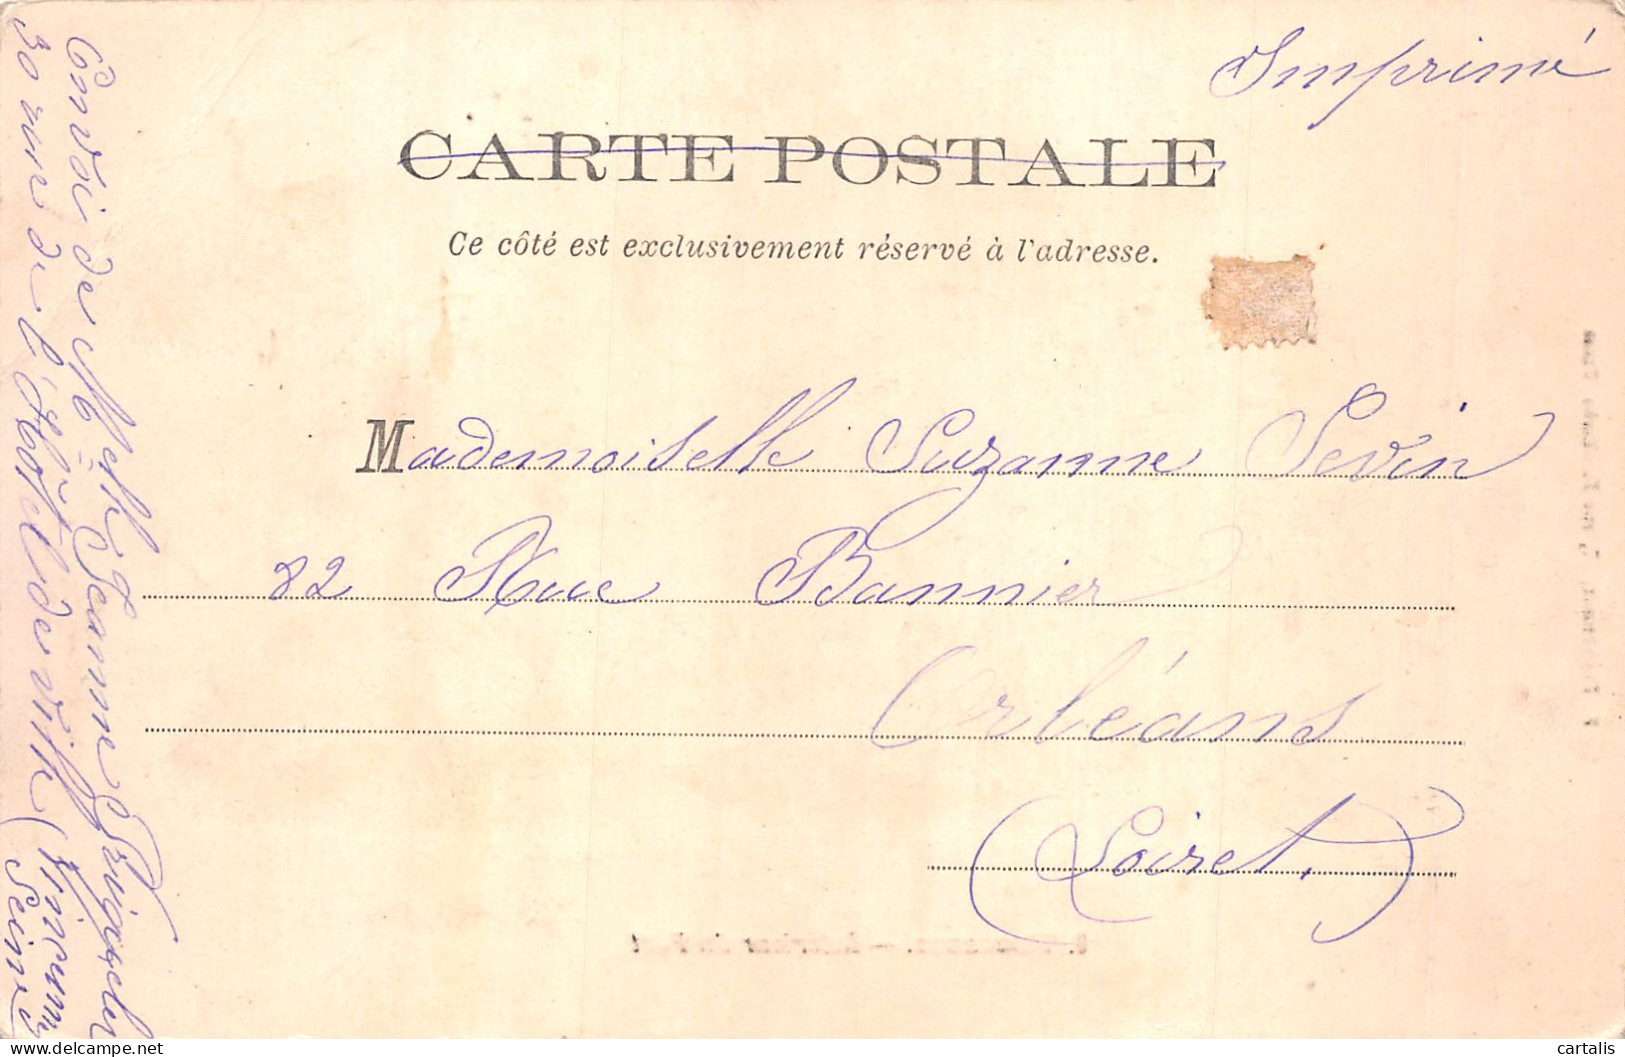 Imprimé
CARTE POSTALE
Ce côté est exclusivement réservé à l'adresse.
Mademoiselle Suzanne Sevin
82 Rue Bannier
Orléans
(Loiret.)
Envoi de Melle Jeanne
30 rue de l'Hôtel de ville (Vincennes
Seine)
delcampe.net
cartalis